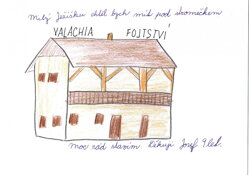 Milý Ježíšku chtěl bych mít pod stromečkem
VALACHIA FOJTSTVÍ
moc rád stavím. Děkuji Josef 9 let.